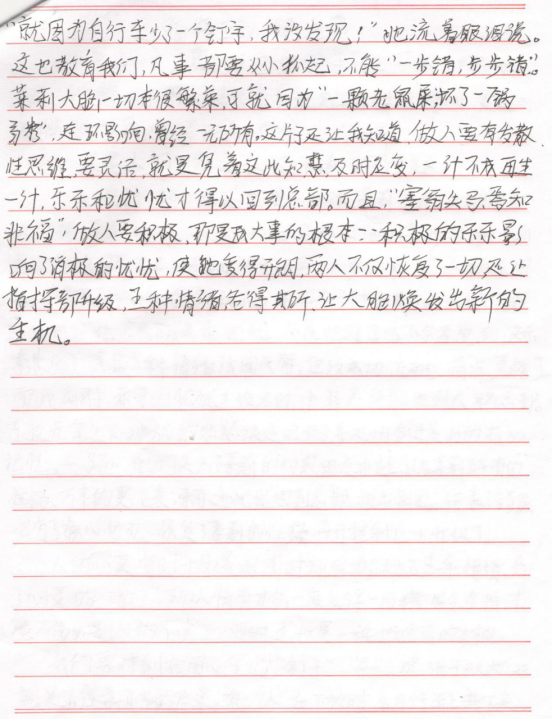 “就因为自行车少了一个钉字，我没发现！”他流着眼泪说。
这也教育我们，凡事都要从小抓起，不能“一步错，步步错”。
莱利大脑一切本很繁荣，可就因为“一颗老鼠屎，坏了一锅
粥”，连环影响，曾经一无所有。这片还让我知道，做人要有发散
性思维，要灵活，就是凭着这些知慧，及时应变，一计不成再生
一计，乐乐和忧忧才得以回到总部。而且，“塞翁失马焉知
非福”，做人要积极，那是成大事的根本：积极的乐乐影
响了消极的忧忧，使她变得开朗，两人不仅恢复了一切，还让
指挥部升级，五种情绪各得其所，让大脑焕发出新的
生机。